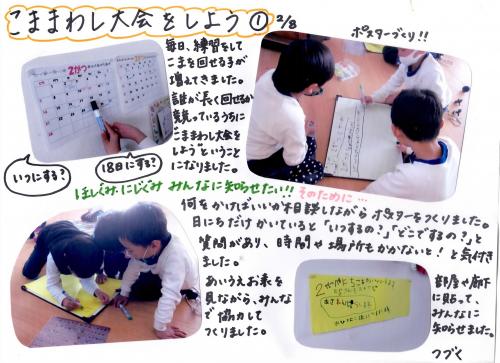 こままわし大会をしよう① 2/8
毎日、練習をして
こまを回せる子が
増えてきました。
誰が長く回せるか
競っているうちに
"こままわし大会を
しよう"ということ
になりました。
2がつ
いつにする?
18日にする?
ポスターづくり!!
ほしぐみ・にじぐみ みんなに知らせたい!! そのために…
何をかけばいいか相談しながらポスターをつくりました。
日にちだけかいていると「いつするの?」「どこでするの?」と
質問があり、時間や場所もかかないと!と気付き
ました。
あいうえお表を
見ながら、みんな
で協力して
つくりました。
部屋や廊下
に貼って、
みんなに
知らせました。
つづく